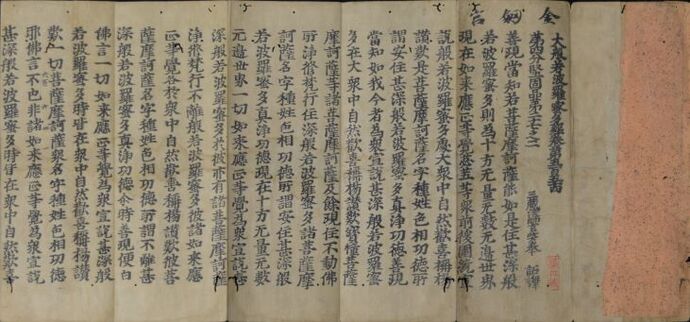 大般若波羅蜜多經卷第五百五十
第四分堅固品第二十七之二
三藏法師玄奘奉 詔譯
善現當知若菩薩摩訶薩能如是住甚深般
若波羅蜜多則為十方无量无數无邊世界
現在如來應正等覺苾芻等衆前後圍繞宣
說般若波羅蜜多處大衆中自然歡喜稱揚
讚歎是菩薩摩訶薩名字種姓色相功德所
謂安住甚深般若波羅蜜多真淨功德善現
當知如我今者為衆宣說甚深般若波羅蜜
多在大衆中自然歡喜稱揚讚歎寶幢菩薩
摩訶薩等諸菩薩摩訶薩及餘現住不動佛
所淨修梵行住深般若波羅蜜多諸菩薩摩
訶薩名字種姓色相功德所謂安住甚深般
若波羅蜜多真淨功德現在十方无量无數
无邊世界一切如來應正等覺為衆宣說甚
深般若波羅蜜多於彼亦有諸菩薩摩訶薩
淨修梵行不離般若波羅蜜多彼諸如來應
正等覺各於衆中自然歡喜稱揚讚歎彼菩
薩摩訶薩名字種姓色相功德所謂不離甚
深般若波羅蜜多真淨功德尒時善現便白
佛言一切如來應正等覺為衆宣說甚深般
若波羅蜜多時皆在衆中自然歡喜稱揚讚
歎一切菩薩摩訶薩衆名字種姓色相功德
耶佛言不也非諸如來應正等覺為衆宣說
甚深般若波羅蜜多時皆在衆中自然歡喜